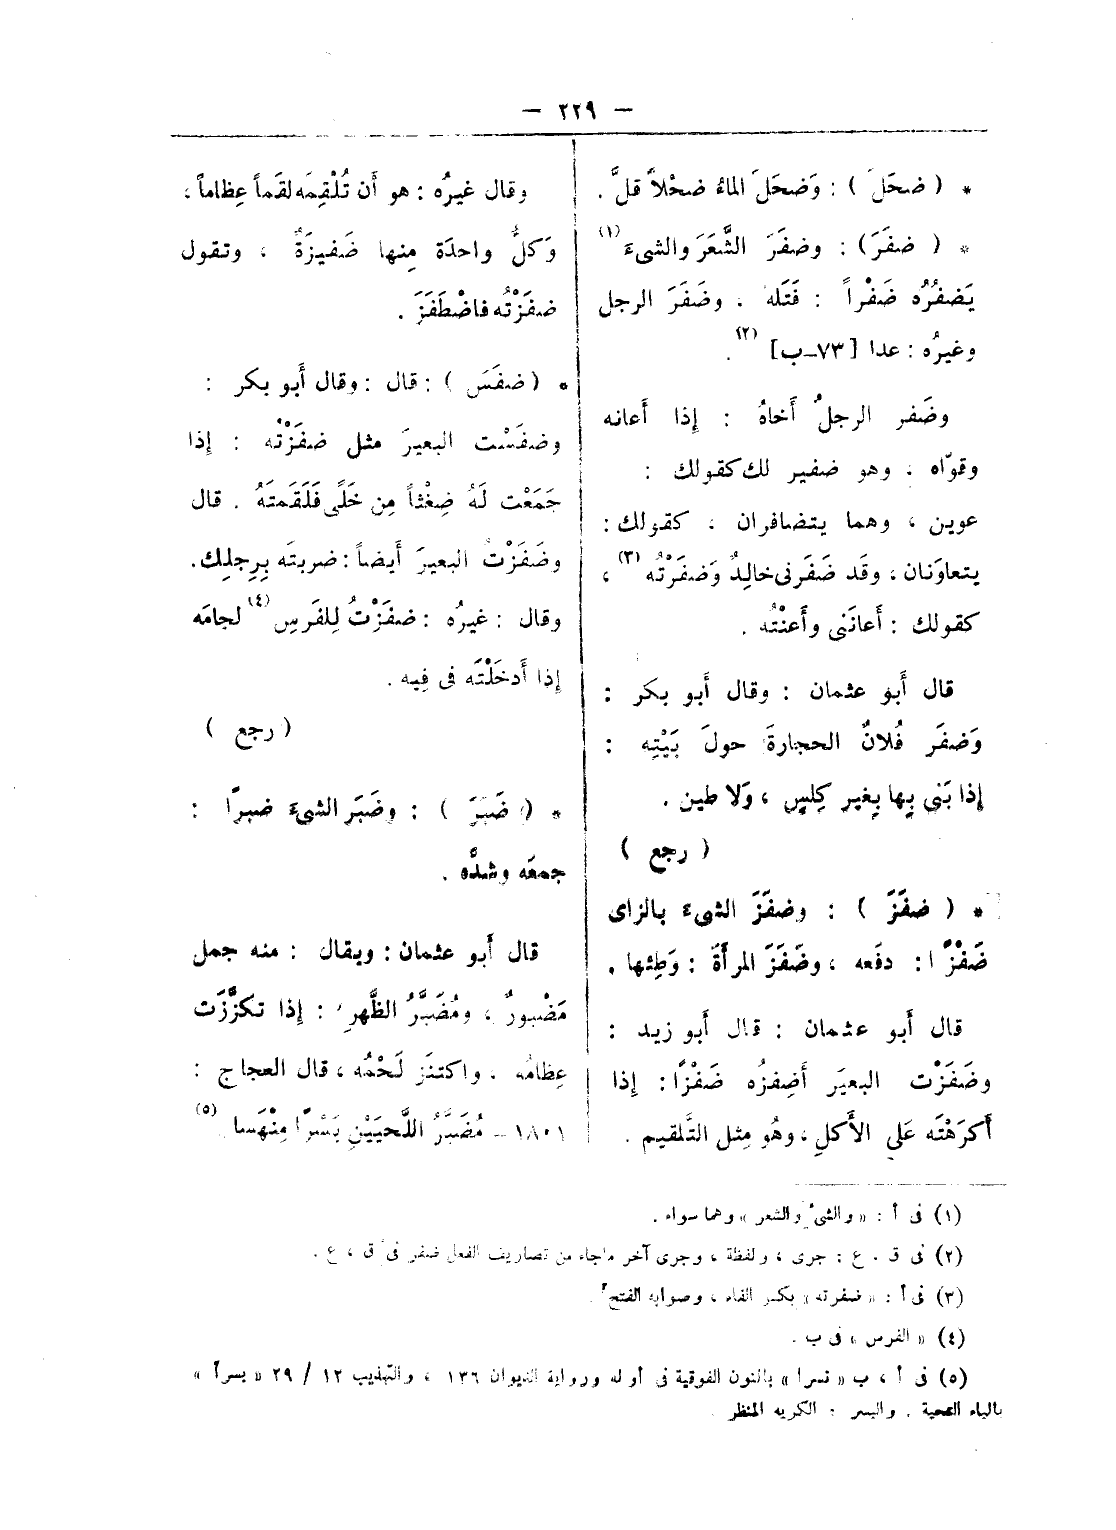 — ٢٢٩ —
* ( ضحَلَ ) : وَضحَلَ الماءُ ضحْلاً قلَّ .
* ( ضفَرَ ) : وضفَرَ الشَّعَرَ والشىءَ (١)
يَضفُرُه ضَفْراً : فَتَله . وضَفَرَ الرجل
وغيرُه : عدا [ ٧٣ــب ] (٢) .
وضَفر الرجلُ أَخاهُ : إذا أَعانه
وقوّاه . وهو ضفير لك كقولك :
عوين ، وهما يتضافران ، كقولك :
يتعاوَنان ، وقد ضَفَرنى خالِدٌ وَضفَرْتُه (٣) ،
كقولك : أَعانَنى وأَعنْتُه .
قال أَبو عثمان : وقال أَبو بكر :
وَضفَر فُلانٌ الحجارةَ حولَ بَيْتِه :
إذا بَنى بِها بِغير كِلسٍ ، وَلا طين .
( رجع )
* ( ضفَزَ ) : وضفَزَ الشىءَ بالزاى
ضَفْزًا : دفَعه ، وضَفَزَ المرأَةَ : وَطِئها .
قال أَبو عثمان : قال أَبو زيد :
وضَفَزْت البعيَر أَضِفزُه ضَفْزًا : إذا
أَكرَهْتَه عَلى الأَكلِ ، وهُو مِثل التَّلقيم .
وقال غيرُه : هو أَن تُلْقِمَه لقَماً عِظاماً ،
وَكلُّ واحدَة مِنها ضَفيزَةٌ ، وتقول
ضفَزْتُه فاضْطَفَزَ .
* ( ضفَسَ ) : قال : وقال أَبو بكر :
وضفَسْت البعيرَ مثل ضفَزْتُه : إذا
جَمَعْت لَهُ ضِغْثاً مِن خَلًى فَلَقَمتَهُ . قال
وضَفَزْتُ البعيرَ أَيضاً : ضربتَه بِرِجلِك .
وقال : غيرُه : ضفَزْتُ لِلفَرسِ (٤) لجامَه
إذا أَدخَلْتَه فى فِيه .
( رجع )
* ( ضَبَرَ ) : وضَبَر الشىءَ ضبرًا :
جمعَه وشدَّه .
قال أَبو عثمان : ويقال : منه جمل
مَضْبورٌ ، ومُضَبَّرُ الظَّهرِ : إذا تكزَّزَت
عِظامُه . واكتنَز لَحْمُه ، قال العجاج :
١٨٠١ – مُضَبَّرُ اللَّحيَيْنِ بَسْرًا مِنْهَسا (٥)
(١) فى أ : « والشىء والشعر » وهما سواء .
(٢) فى ق . ع : جرى ، ولفظة ، وجرى آخر ماجاء من تصاريف الفعل ضفر فى ق ، ع .
(٣) فى أ : « ضفرته » بكسر الفاء ، وصوابه الفتح .
(٤) « الفرس » فى ب .
(٥) فى أ ، ب « نسرا » بالنون الفوقية فى أوله ورواية الديوان ١٣٦ ، والتهذيب ١٢ / ٢٩ « بسرآ »
بالباء التحتية . والبسر : الكريه المنظر .